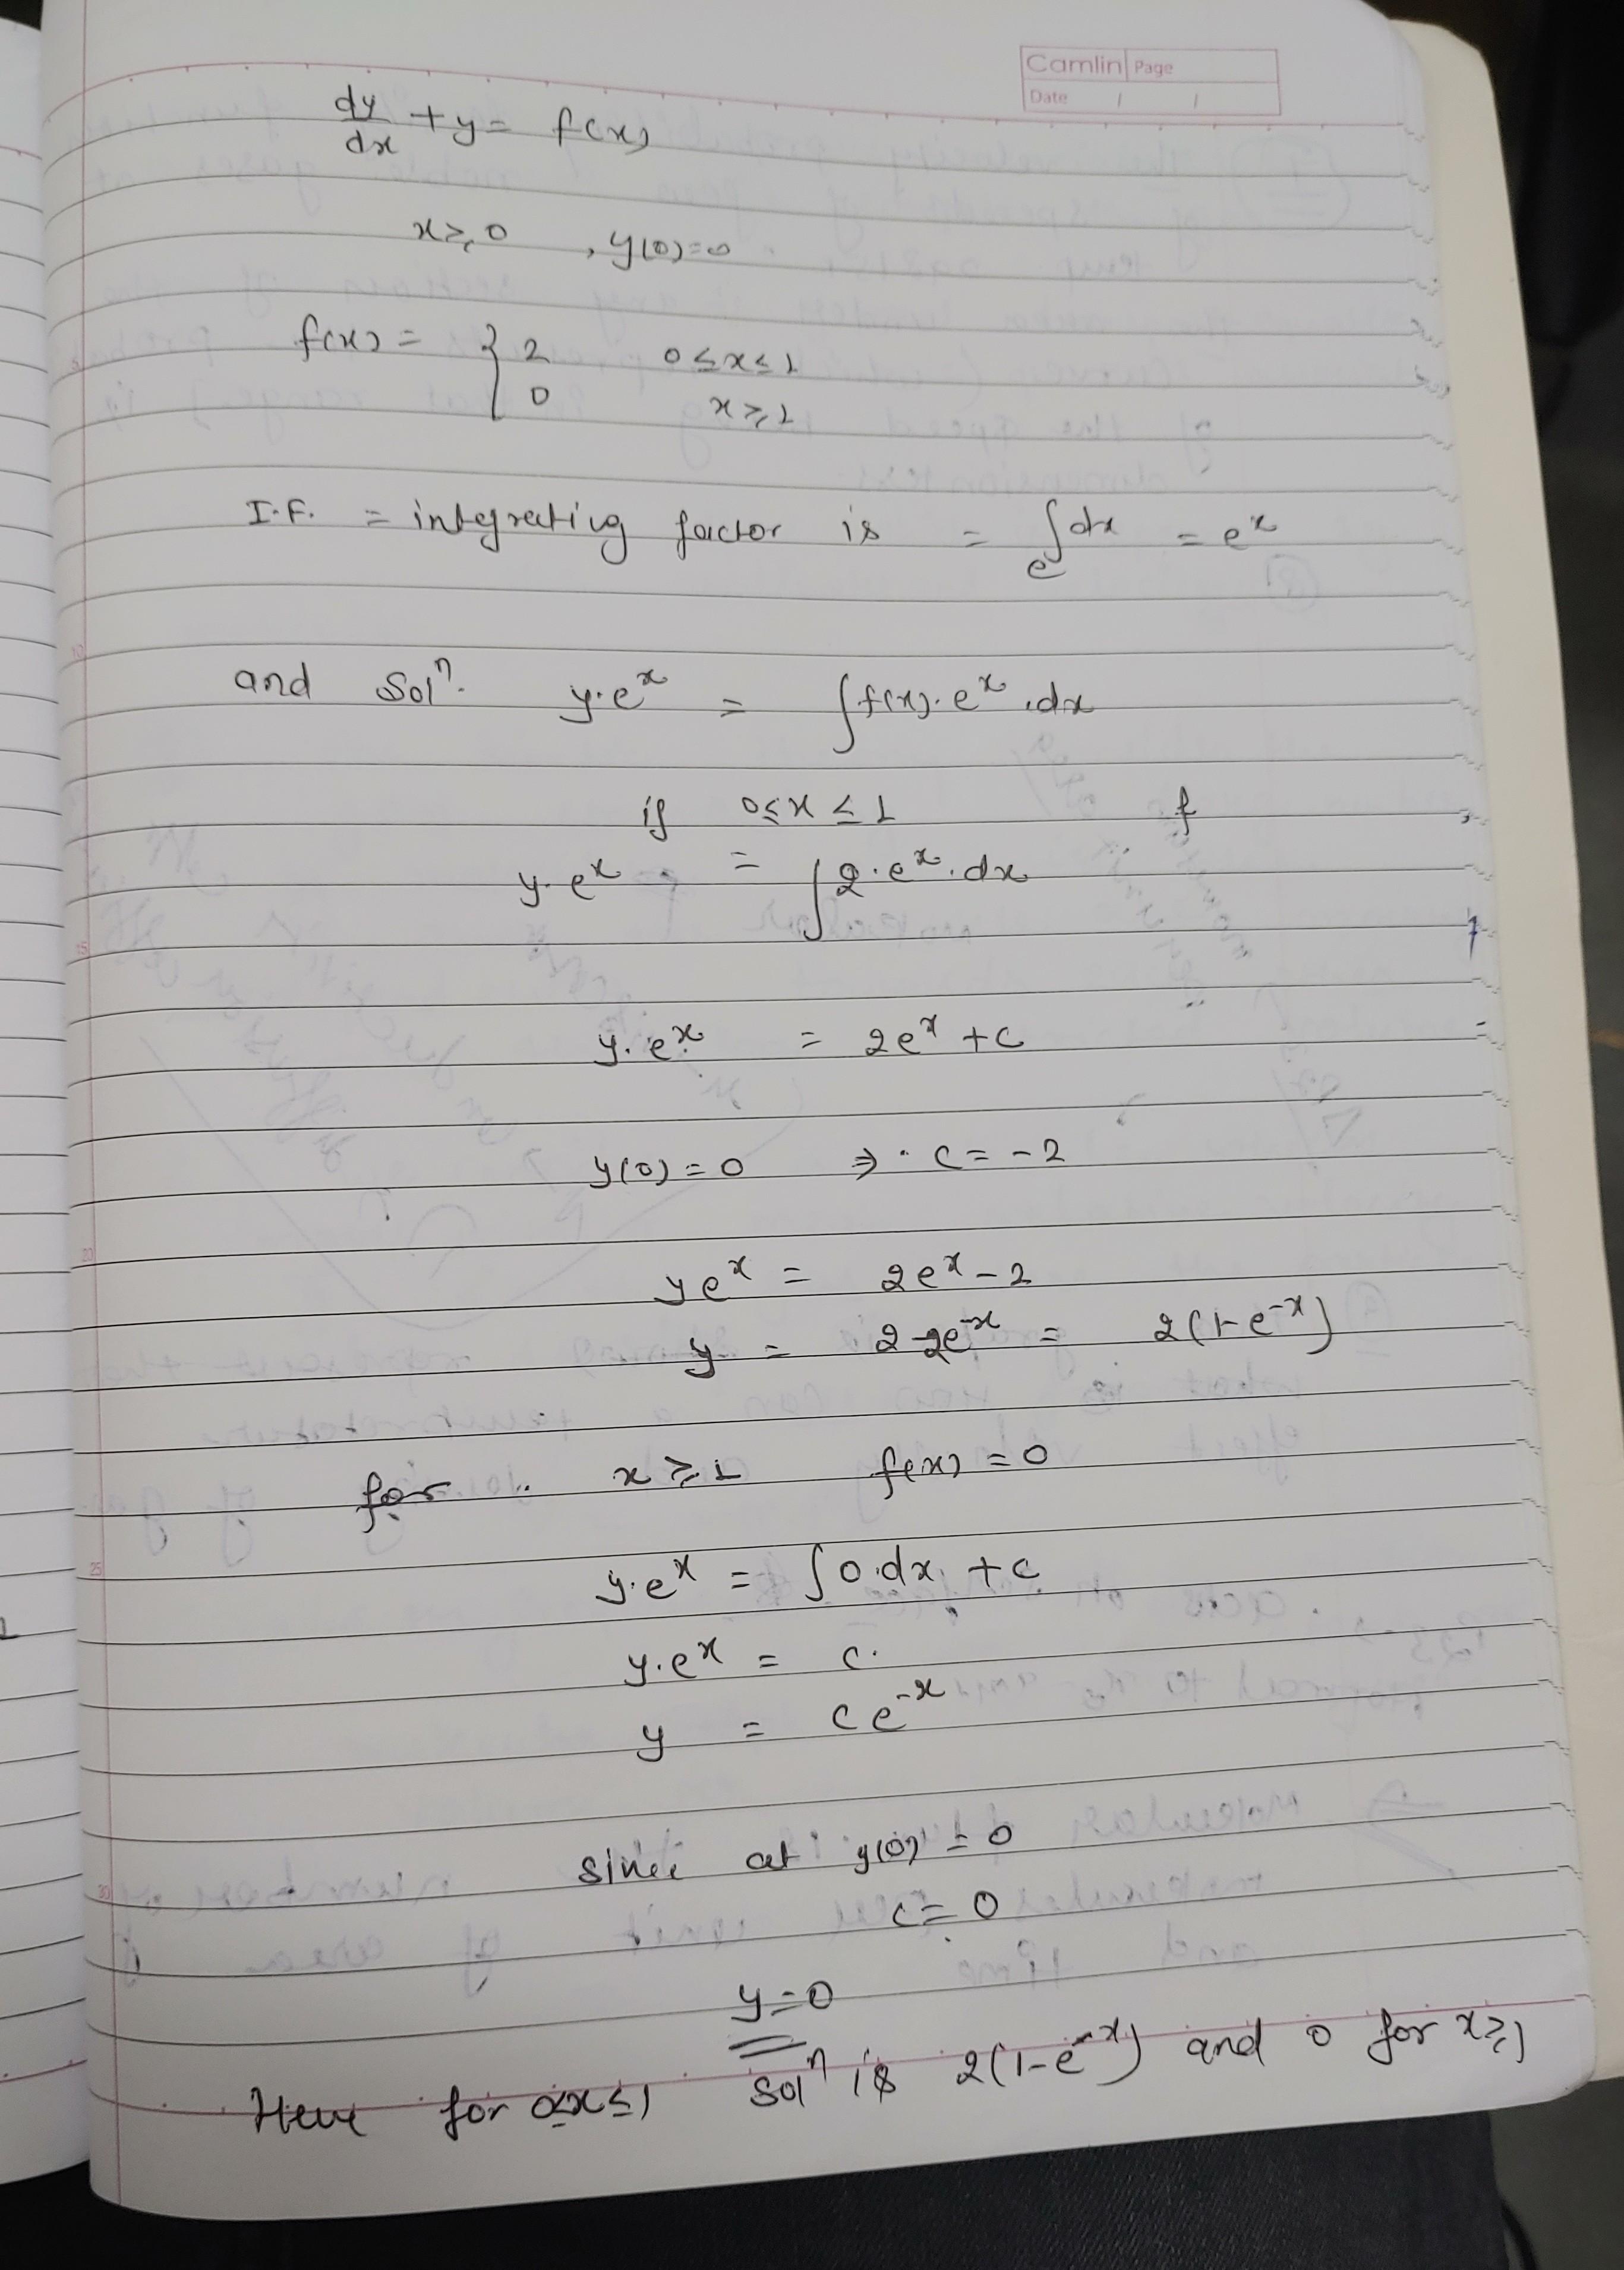 Camlin Page
Date / /
dy/dx + y = f(x)
x ≥ 0 , y(0)=0
f(x) = { 2 0 ≤ x ≤ 1
0 x ≥ 1
I.F. = integrating factor is = e^∫dx = e^x
and Solⁿ. y·e^x = ∫f(x)·e^x·dx
if 0≤x ≤ 1 f
y·e^x = ∫2·e^x·dx
y·e^x = 2e^x + c
y(0) = 0 ⇒ · c = -2
ye^x = 2e^x - 2
y = 2-2e^-x = 2(1-e^-x)
for x ≥ 1 f(x) = 0
y·e^x = ∫0·dx + c
y·e^x = c.
y = ce^-x
since at y(0) = 0
c = 0
y=0
Here for 0≤x≤1 Solⁿ is 2(1-e^-x) and 0 for x≥1